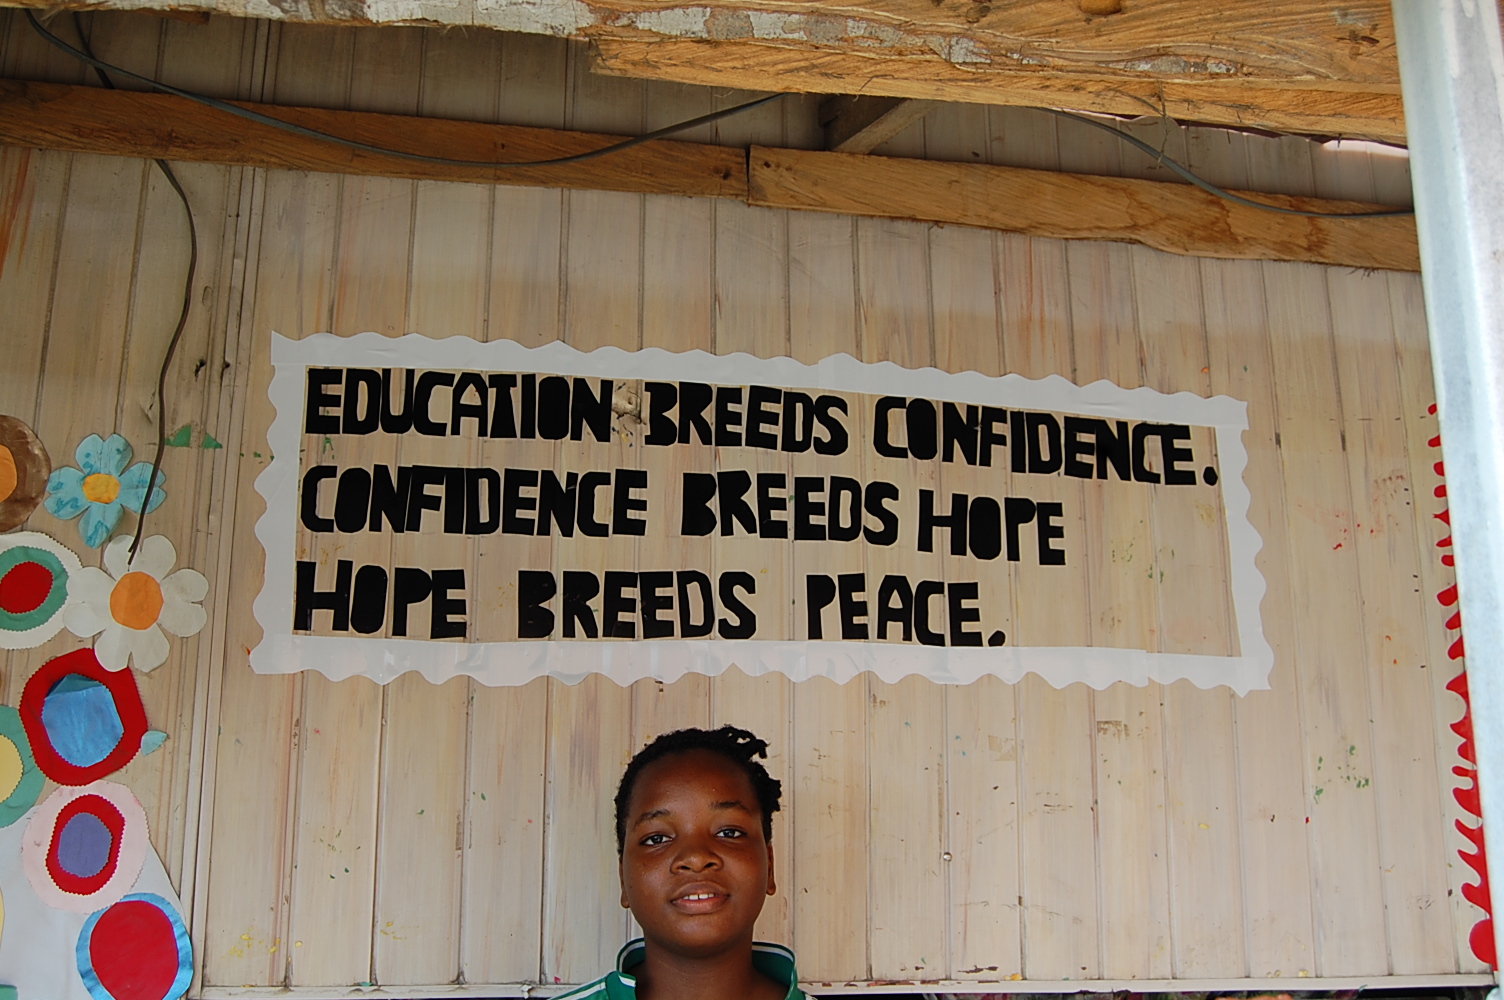 EDUCATION BREEDS CONFIDENCE.
CONFIDENCE BREEDS HOPE
HOPE BREEDS PEACE.